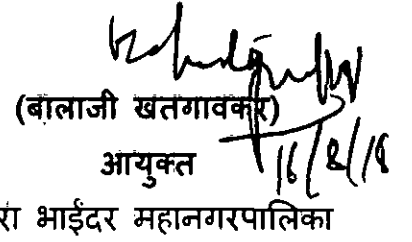 (बालाजी खतगावकर)
आयुक्त
16/8/18
रा भाईंदर महानगरपालिका